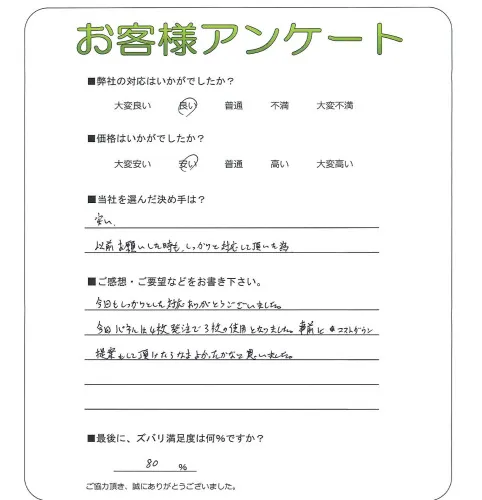 お客様アンケート
■弊社の対応はいかがでしたか？
大変良い 良い 普通 不満 大変不満
■価格はいかがでしたか？
大変安い 安い 普通 高い 大変高い
■当社を選んだ決め手は？
安い、
以前お願いした時も、しっかりと対応して頂いた為
■ご感想・ご要望などをお書き下さい。
今回もしっかりとした対応ありがとうございました。
今回パネルは4枚発注で3枚の使用となりました。事前にコストダウン
提案もして頂けたらなお よかったかなって思いました。
■最後に、ズバリ満足度は何%ですか？
80 %
ご協力頂き、誠にありがとうございました。